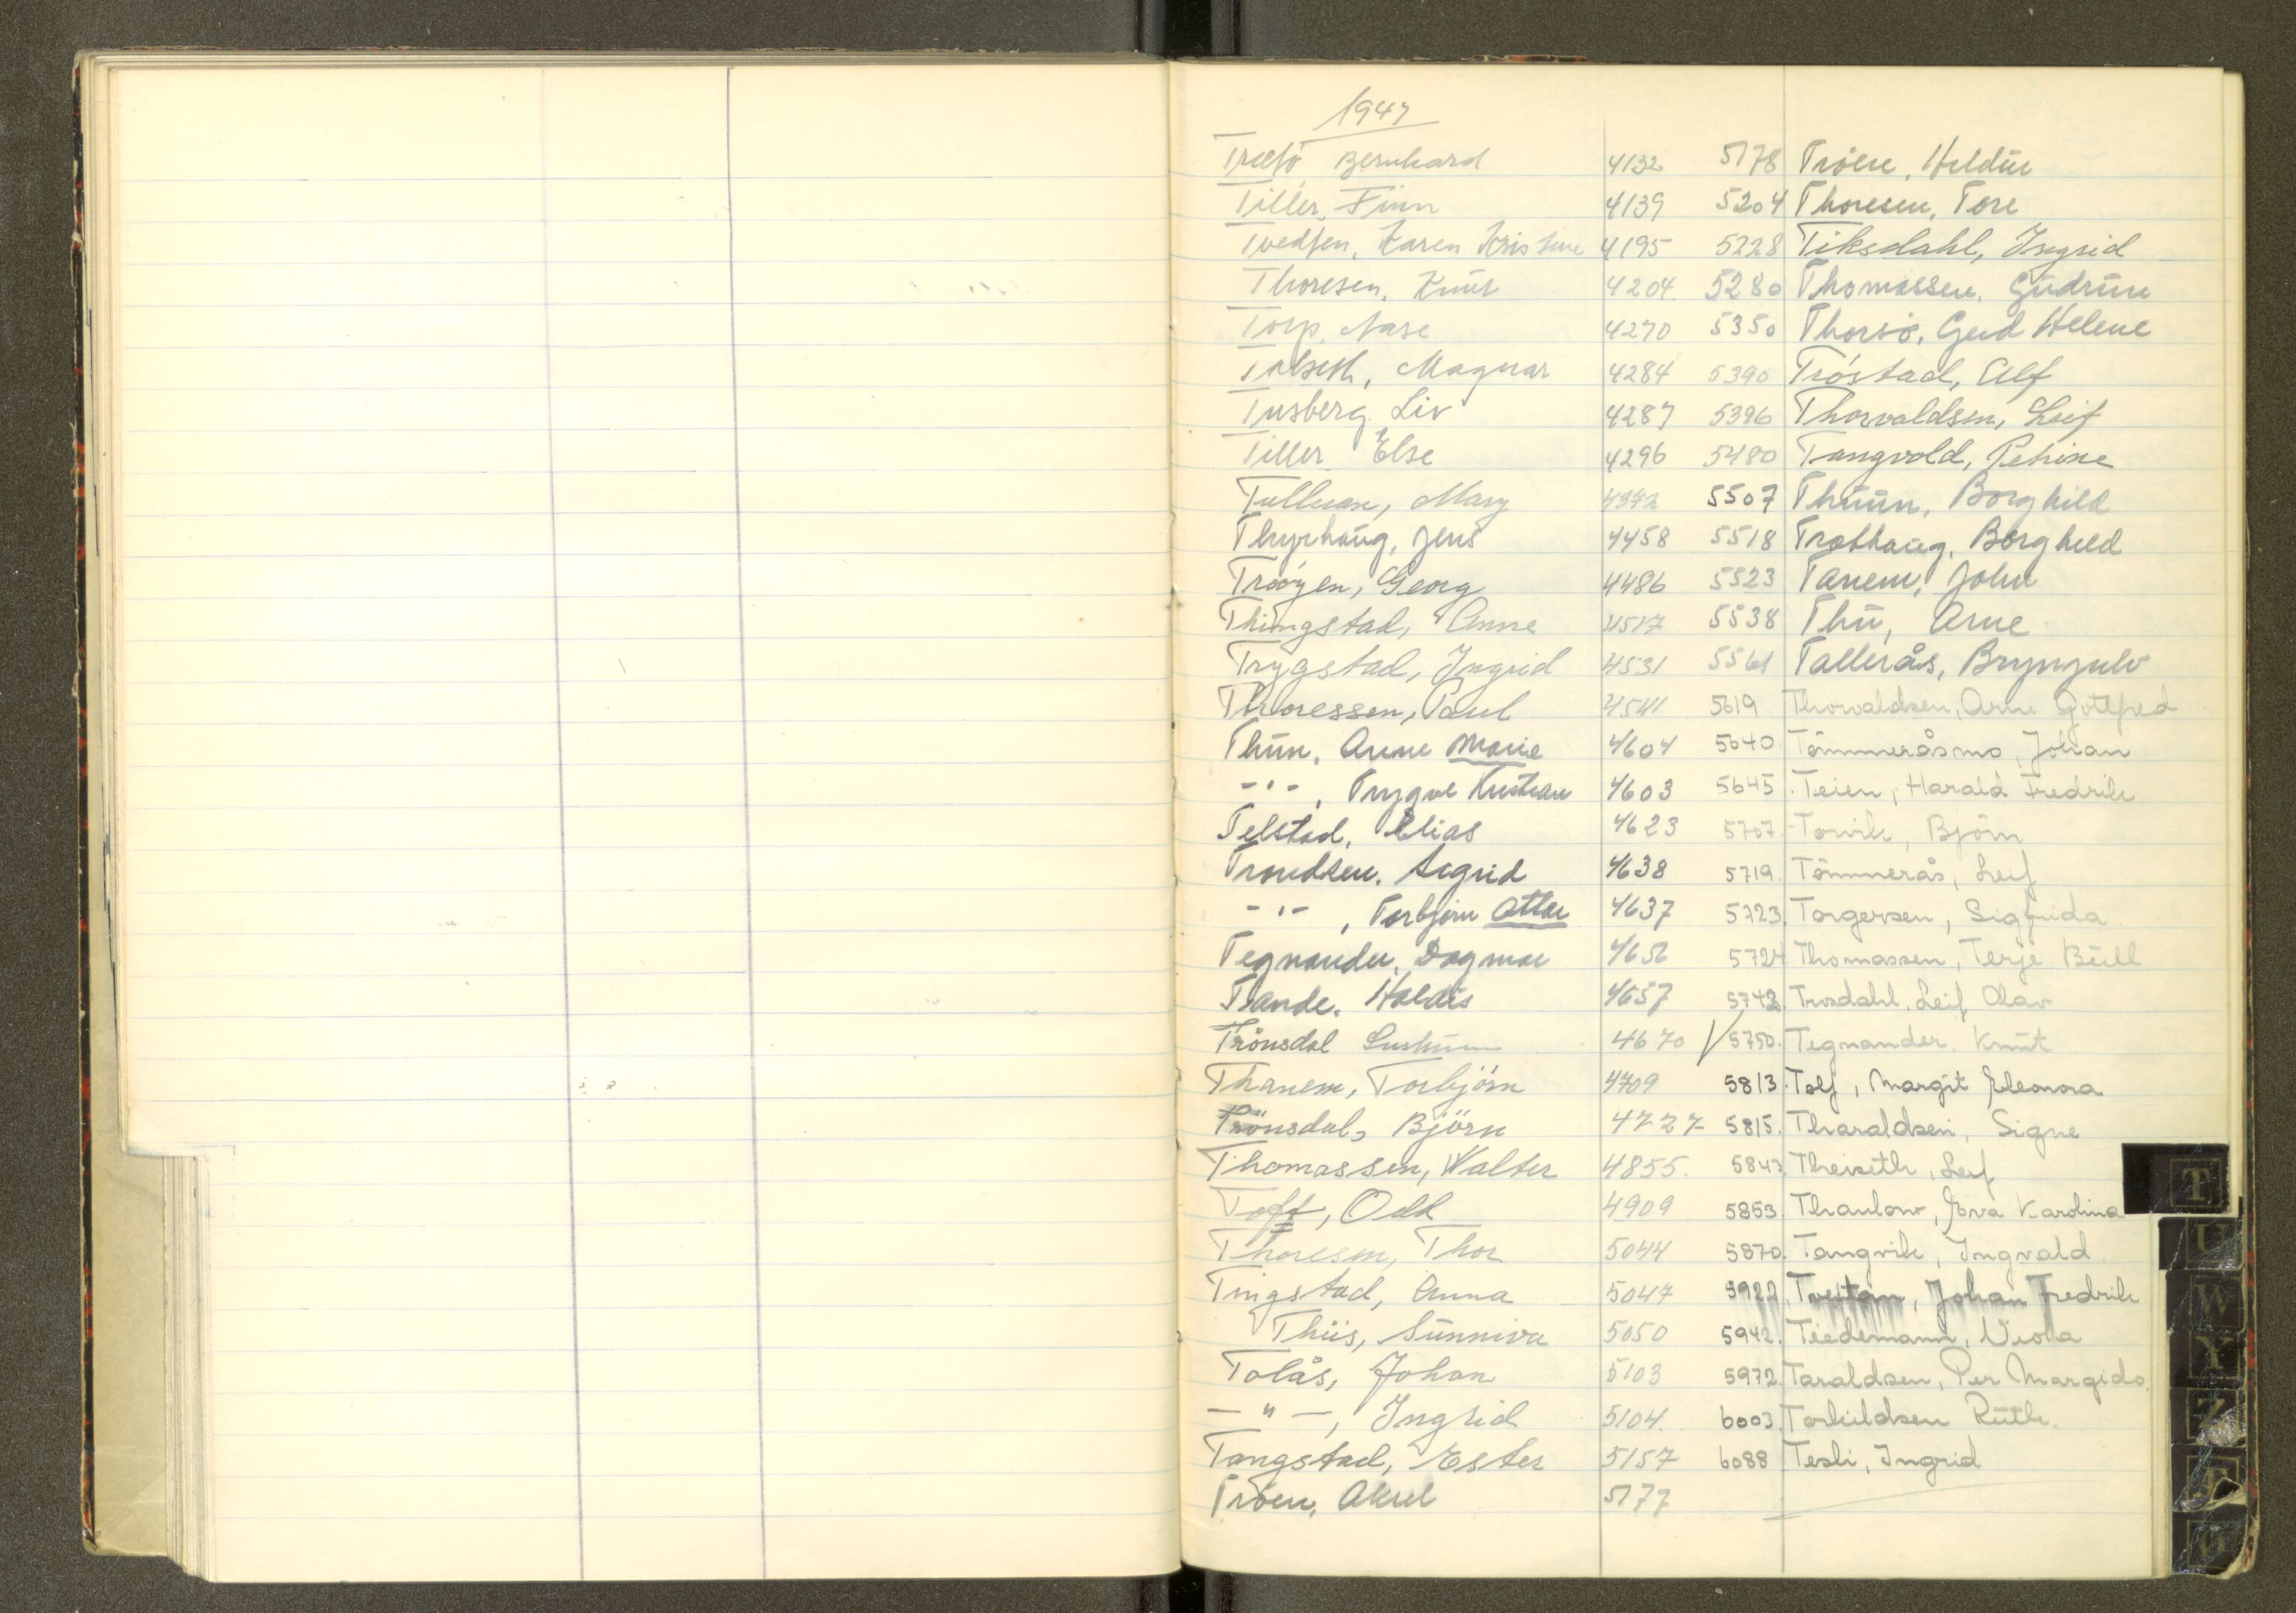 1947
Bernhard 4132 5178 Tröen,
Tiller, Finn 4139 5204 Thoresen, Tore
Karen Kristine 4195 5228 Tiksdahl, Ingrid
Thoresen, Knut 4204. 5280 Thomassen, Gudrun
Torp, Aase 4270 5350 Thorsö, Gerd Helene
Magnar 4284 5390 Tröstad, Alf
Tusberg Liv 4287 5396 Thorvaldsen, Leif
Tiller Else 4296 5480 Tangvold, Petrine
Tullman, Mary 4372 5507 Thuun, Borghild
Thyrhaug, Jens 4458 5518 Borghild
Trööyen, Georg 4486 5523 Tanem, John
Thingstad, Anne 4517 5538 Thu, Arne
Trygstad, Ingrid 4531 5561 Tallerås, Brynjulv
Thoressen, Paul 4541 5619 Thorvaldsen, Arne Gottfred
Thun, Anne Marie 4604 5640 Tömmeråsmo, Johan
-"-, Trygve Kristian 4603 5645 Teien, Harald Fredrik
Telstad, Elias 4623 5707 Torvik, Björn
Trondsen, Sigrid 4638 5719. Tömmerås, Leif
-"-, Torbjörn Ottar 4637 5723. Torgersen, Sigfrida
Tegnander, Dagmar 4656 5724 Thomassen, Terje Bull
Tande, Haldis 4657 5742 Trosdahl, Leif Olav
Trönsdal 4670 √ 5750. Tegnander Knut
Thanem, Torbjörn 4709 5813. Tolf, Margit Eleonora
Trönsdal, Björn 4727 5815. Tharaldsen, Signe
Thomassen, Walter 4855. 5843 Theiseth, Leif
Toft, Odd 4909 5853. Thaulow, Eva Karolina
Thoresen, Thor 5044 5870. Tangvik, Ingvald
Tingstad, Anna 5047 5922. Tveitan, Johan Fredrik
Thiis, Sunniva 5050 5942. Tiedemann, Viola
Tolås, Johan 5103 5972. Taraldsen, Per Margido
-"-, Ingrid 5104. 6003. Torkildsen Ruth.
Tangstad, Ester 5157 6088 Tesli, Ingrid
Tröen, Aksel 5177
T
U
W
Y
Z